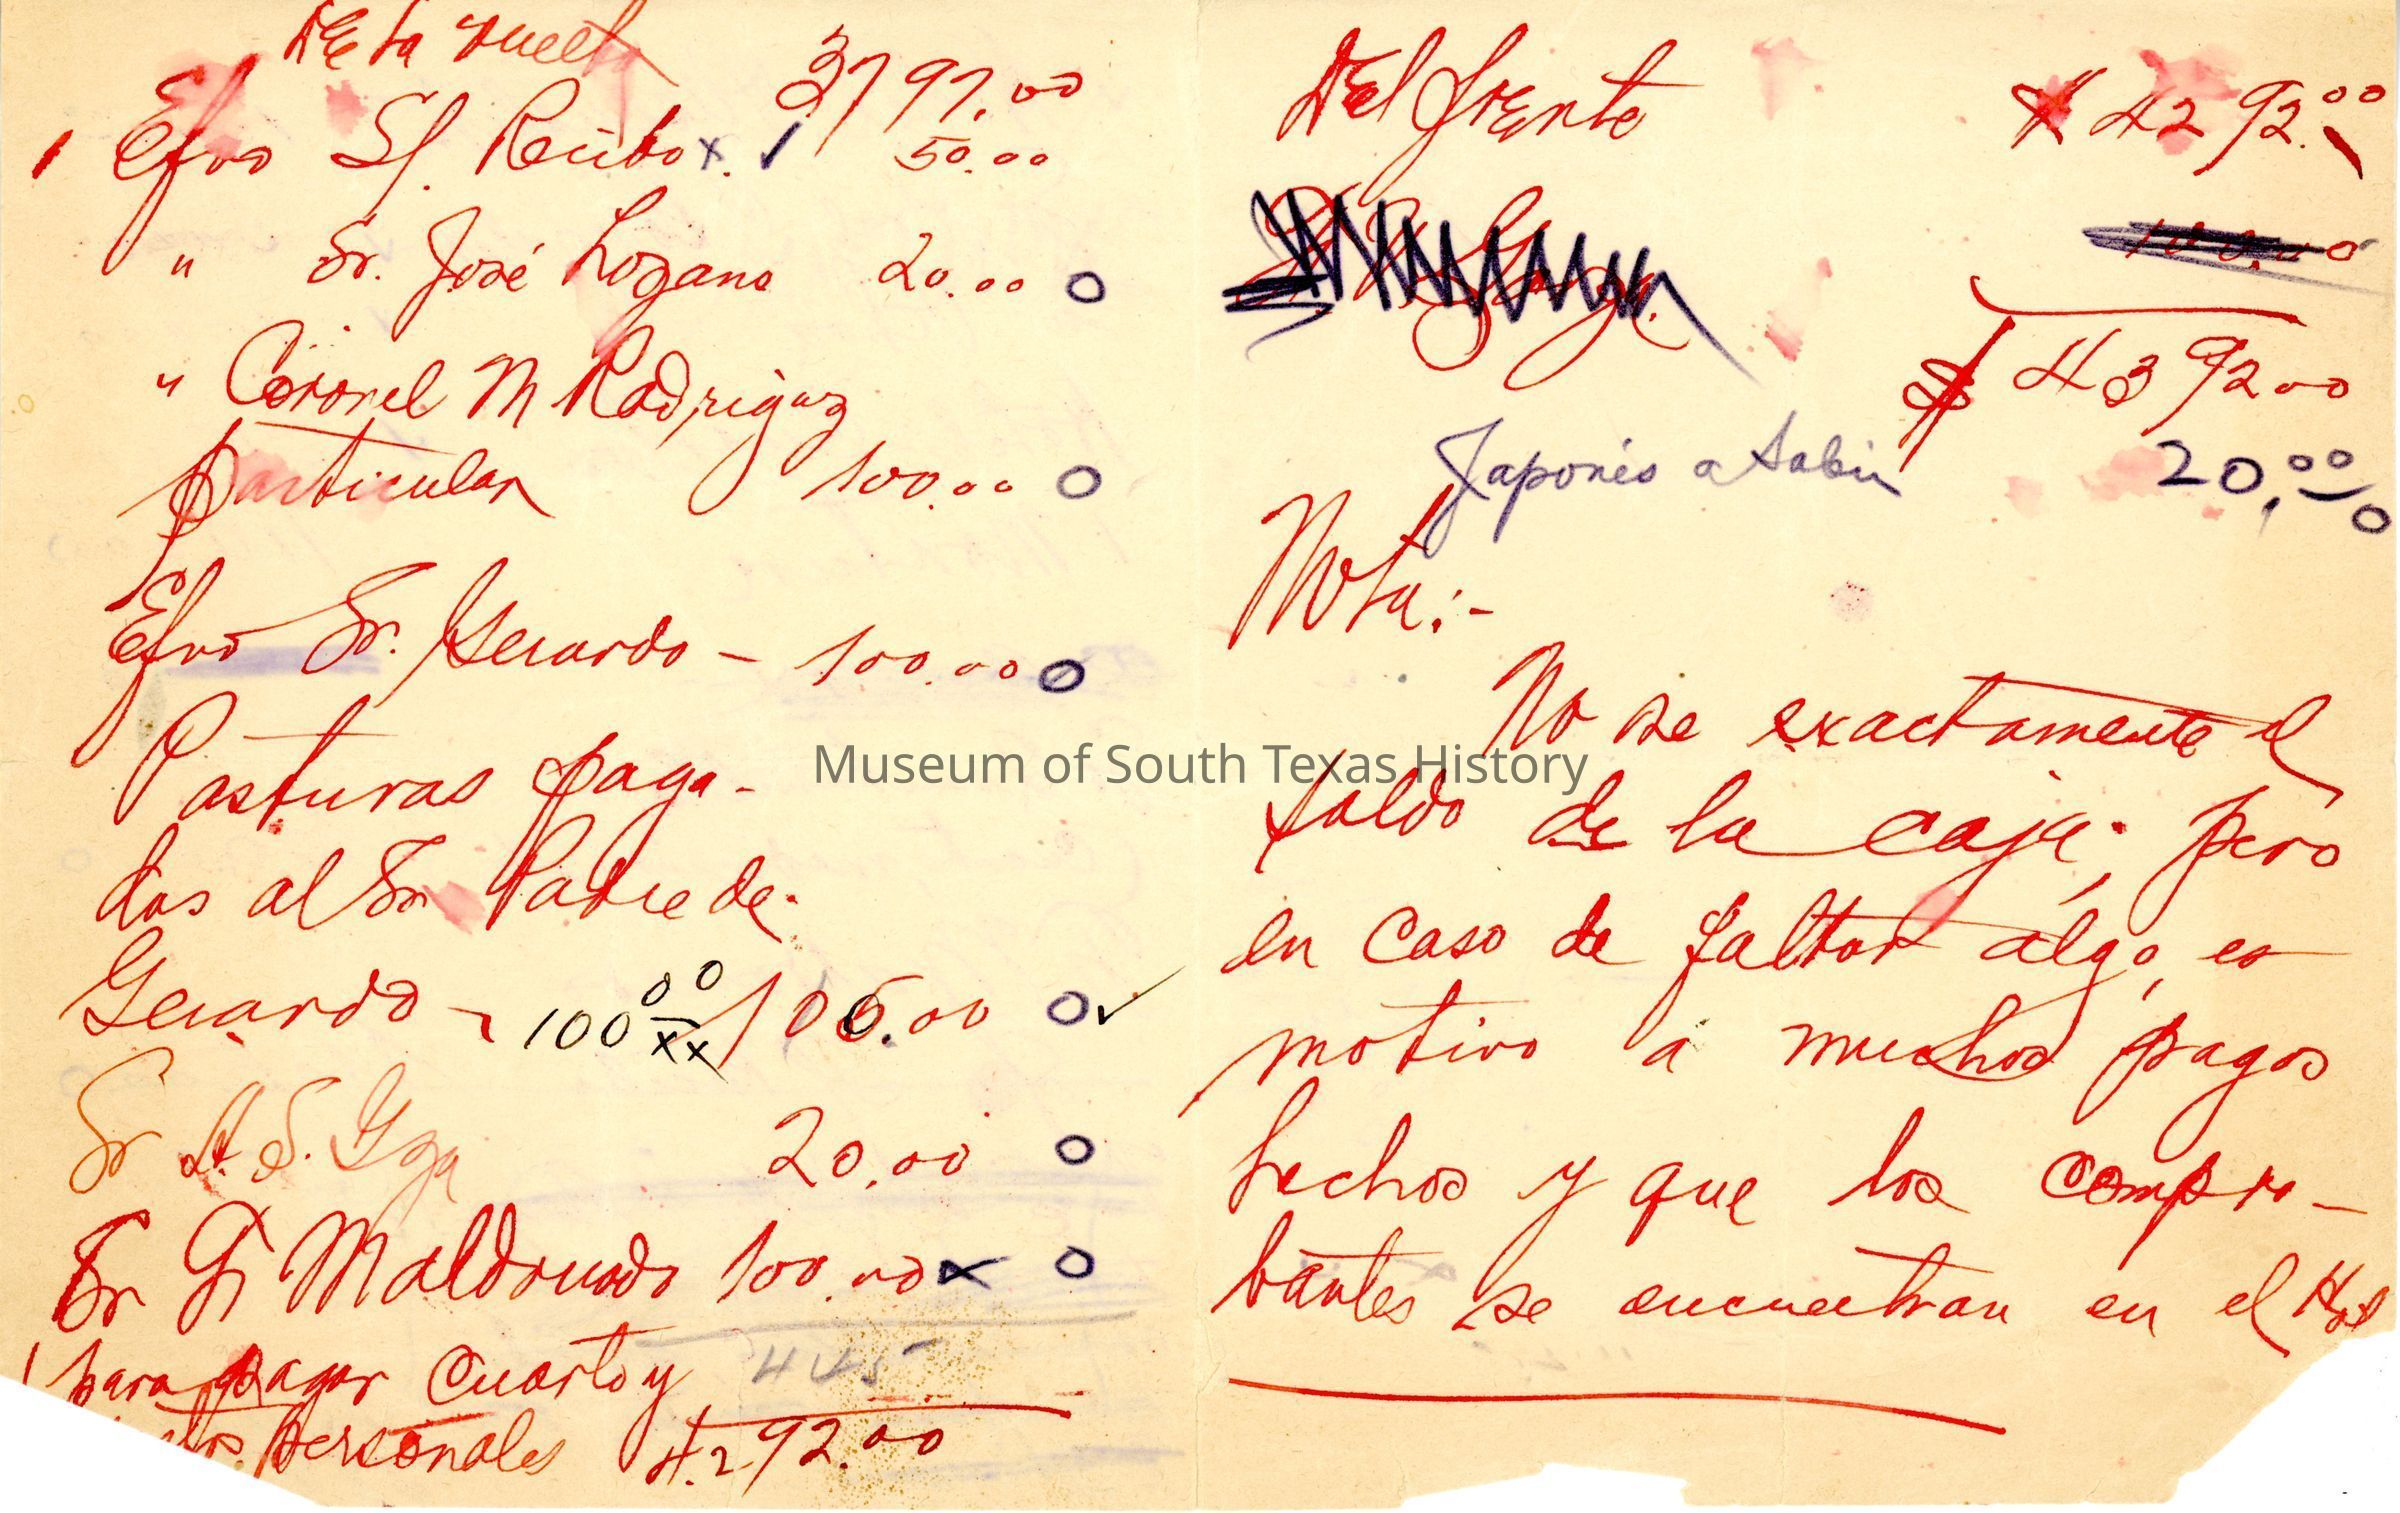 De la vuelta 3797.00
Efvo Sf. Recibo x. ✓ 50.00
" Sr. José Lozano 20.00 O
" Coronel M Rodriguez
particular 100.00 O
Efvo Sr. Gerardo - 100.00 O
Pasturas paga-
das al Sr Padre de.
Gerardo - 100 00/xx 105.00 O ✓
Sr A. S. Gza 20.00 O
Sr G Maldonado 100.00 x O
para pagar Cuarto y
445
personales 4.292.00
Del frente $ 4292.00
100.00
$ 4392.00
Japonés a Sabin 20.00 O
Nota:-
No se exactamente el
saldo de la caja; pero
en caso de faltar algo, es
motivo a muchos pagos
hechos y que los compro-
bantes se encuentran en el
Museum of South Texas History